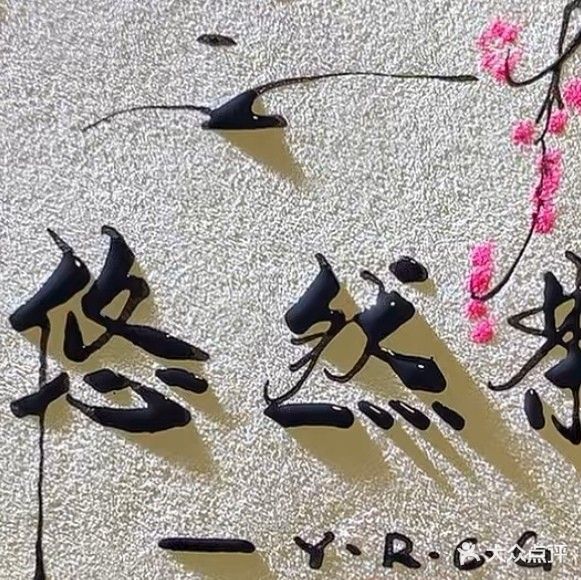 悠然
一 Y·R·
大众点评